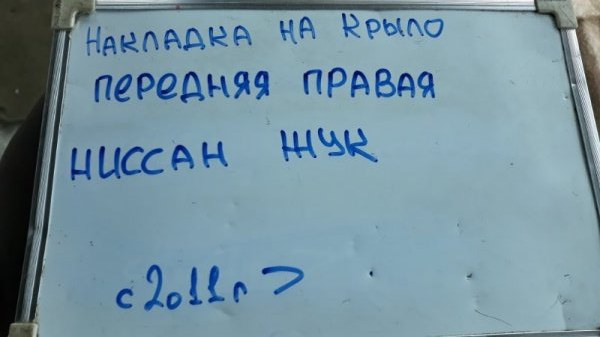 Накладка на крыло
передняя правая
Ниссан Жук
с 2011г >